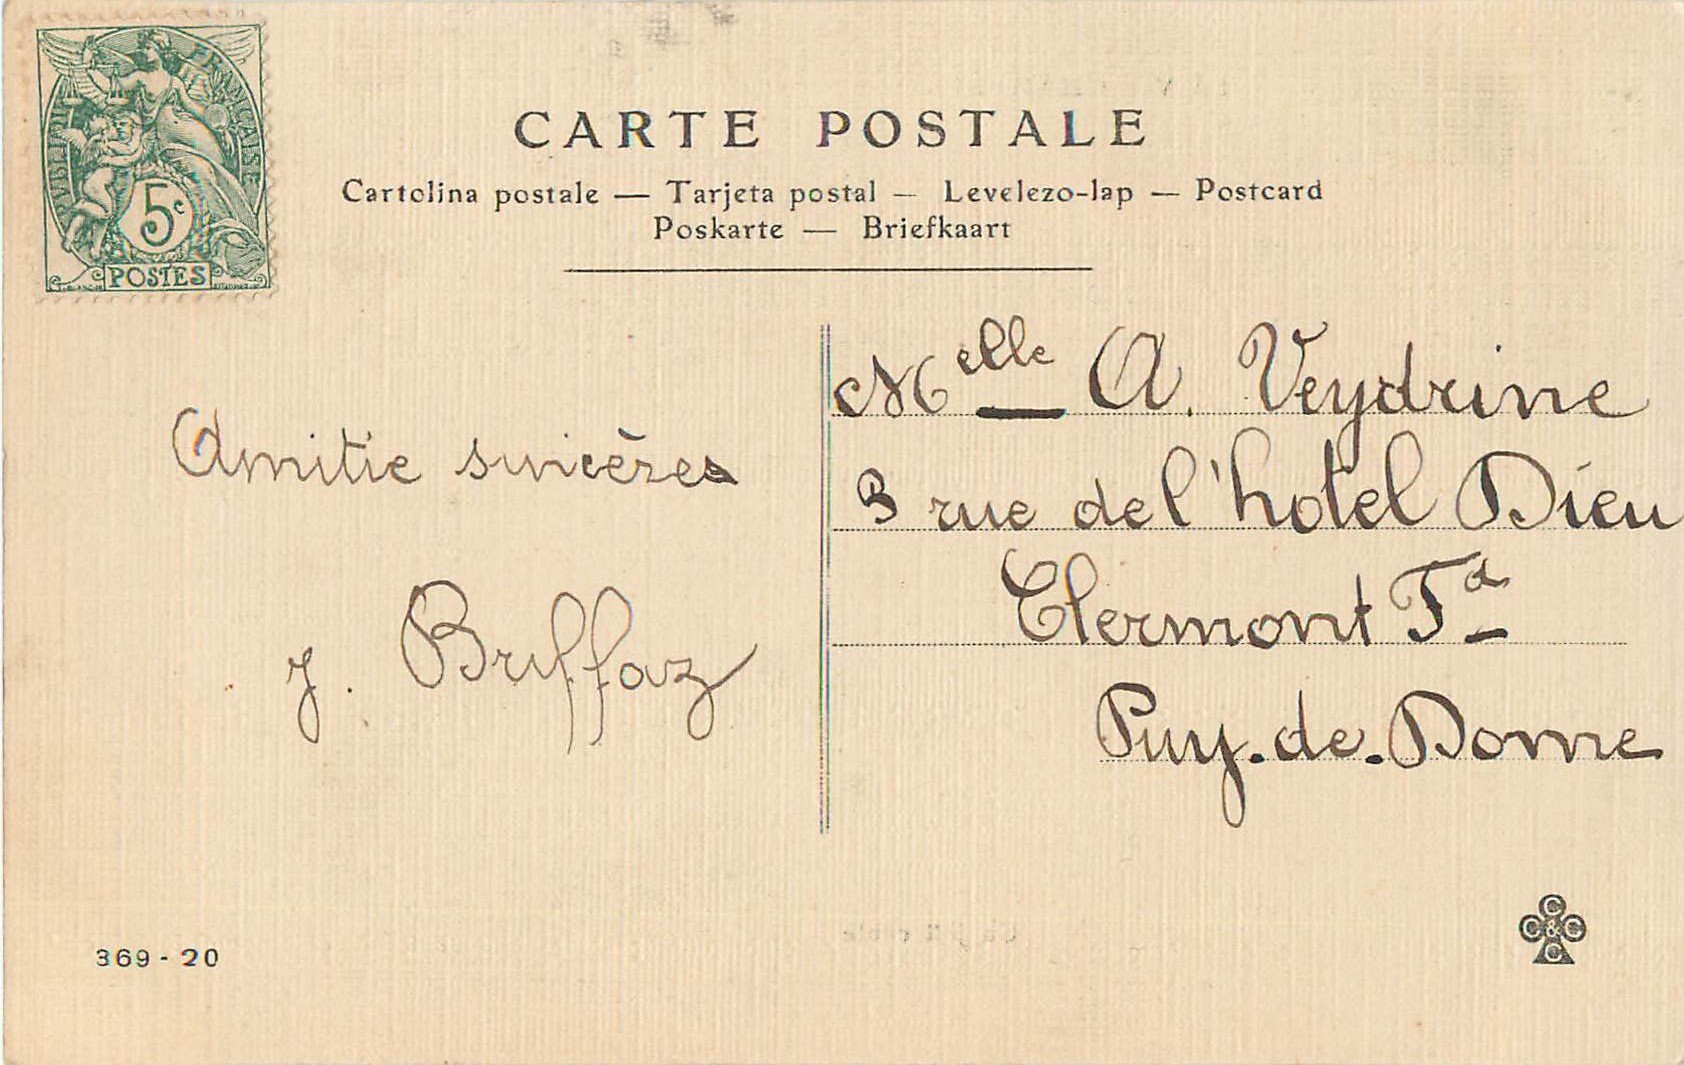 RÉPUBLIQUE FRANÇAISE
5c
POSTES
CARTE POSTALE
Cartolina postale — Tarjeta postal — Levelezo-lap — Postcard
Poskarte — Briefkaart
Amitie sincères
J. Briffaz
Melle A. Veydrine
3 rue de l'hotel Dieu
Clermont Fd
Puy-de-Dome
369 - 20
C
C & C
C